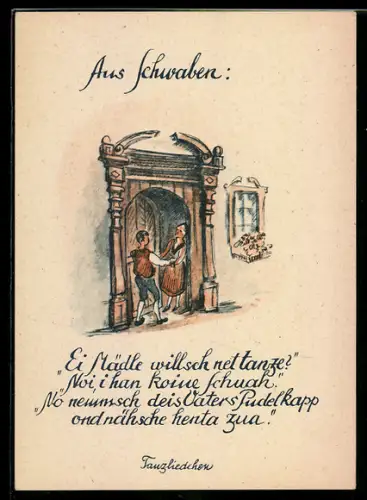 Aus Schwaben:
"Ei Mädle willsch net tanze?"
"Noi, i han koine Schuah."
"No nemmsch deis Vaters Pudelkapp
ond nähsche henta zua."
Tanzliedchen